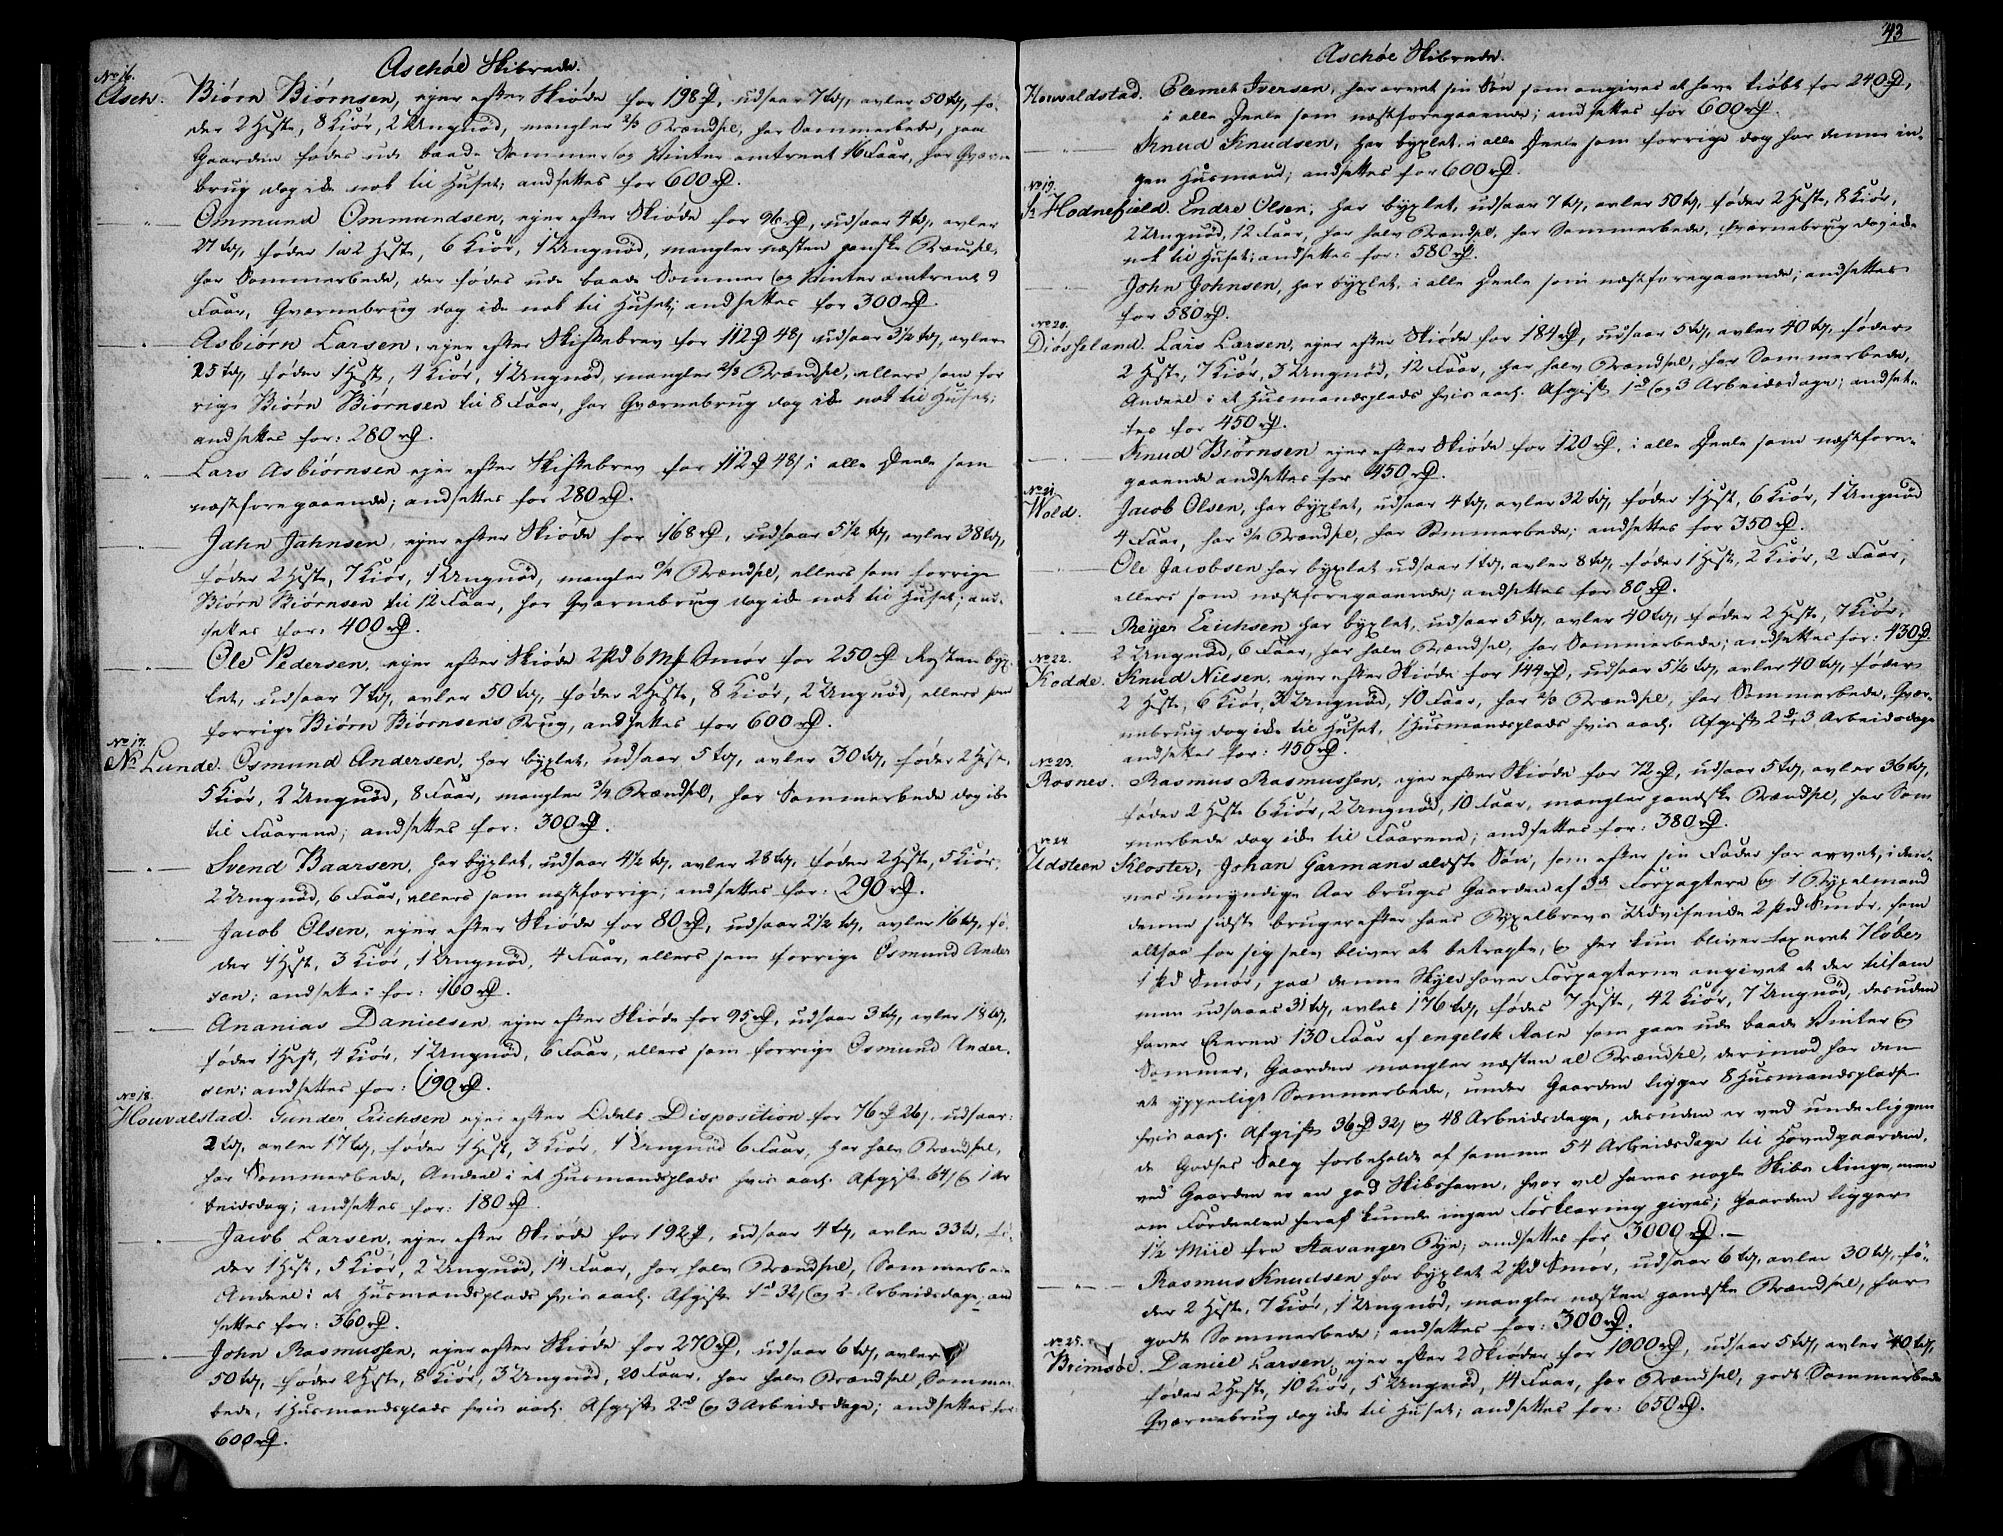 Aschøe Skibrede.
No 16.
Asch. Biørn Biørnsen, ejer efter Skiøde for 198 rd, udsaar 7 tdr, avler 50 tdr, fø-
der 2 Heste, 8 Kiør, 2 Ungnød, mangler 2/3 Brændsel, har Sommerbede, paa
Gaarden fødes ude baade Sommer og Vinter omtrent 16 Faar, har Qværne
brug dog ikke nok til Huset; andsettes for 600 rd.
— " — Ommund Ommundsen, ejer efter Skiøde for 96 rd, udsaar 4 tdr, avler
27 tdr, føder 1 a 2 Heste, 6 Kiør, 1 Ungnød, mangler næsten ganske Brændsel,
har Sommerbede, der fødes ude baade Sommer og Vinter omtrent 9
Faar, Qværnebrug dog ikke nok til Huset; andsettes for 300 rd.
— " — Asbiørn Larsen, ejer efter Skiftebrev for 112 rd 48 s, udsaar 3 1/2 tdr, avler
25 tdr, føder 1 Hest, 4 Kiør, 1 Ungnød, mangler 2/3 Brændsel, ellers som for
rige Biørn Biørnsen til 8 Faar, har Qværnebrug dog ikke nok til Huset;
andsettes for: 280 rd.
— " — Lars Asbiørnsen ejer efter Skiftebrev for 112 rd 48 s, i alle Deele som
næstforegaaende; andsettes for 280 rd.
— " — Jahn Jahnsen, ejer efter Skiøde for 168 rd, udsaar 5 1/2 tdr, avler 38 tdr,
føder 2 Heste, 7 Kiør, 1 Ungnød, mangler Brændsel, ellers som forrige
Biørn Biørnsen til 12 Faar, har Qværnebrug dog ikke nok til Huset; and-
settes for: 400 rd.
— " — Ole Pedersen, ejer efter Skiøde 2 Pd 6 Mk Smør for 250 rd Resten byx-
let, udsaar 7 tdr, avler 50 tdr, føder 2 Heste, 8 Kiør, 2 Ungnød, ellers som
forrige Biørn Biørnsens Brug, andsettes for 600 rd.
No 17.
N. Lunde. Osmund Andersen, har byxlet, udsaar 5 tdr, avler 30 tdr, føder 2 Heste,
5 Kiør, 2 Ungnød, 8 Faar, mangler 3/4 Brændsel, har Sommerbede dog ikke
til Faarene; andsettes for: 300 rd.
— " — Svend Baarsen, har byxlet, udsaar 4 1/2 tdr, avler 28 tdr, føder 2 Heste, 5 Kiør,
2 Ungnød, 6 Faar, ellers som næstforrige; andsettes for: 290 rd.
— " — Jacob Olsen, ejer efter Skiøde for 80 rd, udsaar 2 1/2 tdr, avler 16 tdr, fø-
der 1 Hest, 3 Kiør, 1 Ungnød, 4 Faar, ellers som forrige Osmund Ander
sen; andsettes for: 160 rd.
— " — Ananias Danielsen, ejer efter Skiøde for 95 rd, udsaar 3 tdr, avler 18 tdr,
føder 1 Hest, 4 Kiør, 1 Ungnød, 6 Faar, ellers som forrige Osmund Ander-
sen; andsettes for: 190 rd.
No 18.
Houvalstad. Gunder Erichsen ejer efter Odels Disposition for 76 rd 26 s, udsaar:
2 tdr, avler 17 tdr, føder 1 Hest, 3 Kiør, 1 Ungnød 6 Faar, har halv Brændsel,
har Sommerbede, Andeel i et Husmandsplads hvis aarl. Afgift 64 s og 1 Ar
beidsdag; andsettes for: 180 rd.
— " — Jacob Larsen, ejer efter Skiøde for 192 rd, udsaar 4 tdr, avler 33 td, fø-
der 1 Hest, 5 Kiør, 2 Ungnød, 14 Faar, har halv Brændsel, Sommerbede
Andeel i et Husmandsplads hvis aarl. Afgift 1 rd 32 s og 2 Arbeidsdage; and
settes for: 360 rd.
— " — John Rasmussen, ejer efter Skiøde for 270 rd, udsaar 6 tdr, avler
50 tdr, føder 2 Heste, 8 Kiør, 3 Ungnød, 20 Faar, har halv Brændsel, Sommer
bede, 1 Husmandsplads hvis aarl. Afgift 2 rd og 3 Arbeidsdage; andsettes for
600 rd.
43
Aschøe Skibrede.
Houvaldstad. Clemet Iversen, har arvet sin Søn som angives at have kiøbt for 240 rd,
i alle Deele som næstforegaaende; andsettes for 600 rd.
— " — Knud Knudsen, har byxlet, i alle Deele som forrige dog har denne in-
gen Husmand; andsettes for 600 rd.
No 19.
Hodnefield. Endre Olsen, har byxlet, udsaar 7 tdr, avler 50 tdr, føder 2 Heste, 8 Kiør,
2 Ungnød, 12 Faar, har halv Brændsel, har Sommerbede, Qværnebrug dog ikke
nok til Huset; andsettes for: 580 rd.
— " — John Johnsen, har byxlet, i alle Deele som næstforegaaende; andsettes
for 580 rd.
No 20.
Diøsseland. Lars Larsen, ejer efter Skiøde for 184 rd, udsaar 5 tdr, avler 40 tdr, føder
2 Heste, 7 Kiør, 3 Ungnød, 12 Faar, har halv Brændsel, har Sommerbede,
Andeel i et Husmandsplads hvis aarl. Afgift 1 rd og 3 Arbeidsdage; andset-
tes for 450 rd.
— " — Knud Biørnsen ejer efter Skiøde for 120 rd, i alle Deele som næstfore-
gaaende andsettes for 450 rd.
No 21.
Wold. Jacob Olsen, har byxlet, udsaar 4 tdr, avler 32 tdr, føder 1 Hest, 6 Kiør, 1 Ungnød
4 Faar, har 3/4 Brændsel, har Sommerbede; andsettes for 350 rd.
— " — Ole Jacobsen har byxlet udsaar 1 tdr, avler 8 tdr, føder 1 Hest, 2 Kiør, 2 Faar,
ellers som næstforegaaende; andsettes for 80 rd.
— " — Reyer Erichsen har byxlet, udsaar 5 tdr, avler 40 tdr, føder 2 Heste, 7 Kiør,
2 Ungnød, 6 Faar, har halv Brændsel, har Sommerbede; andsettes for: 430 rd
No 22.
Kodde. Knud Nilsen, ejer efter Skiøde for 144 rd, udsaar 5 1/2 tdr, avler 40 tdr, føder
2 Heste, 6 Kiør, 3 Ungnød, 10 Faar, har 2/3 Brændsel, har Sommerbede, Qvær-
nebrug dog ikke til Huset, 1 Husmandsplads hvis aarl. Afgift 2 rd, 3 Arbeidsdage
andsettes for: 450 rd.
No 23.
Rosnes. Rasmus Rasmussen, ejer efter Skiøde for 72 rd, udsaar 5 tdr, avler 36 tdr,
føder 2 Heste 6 Kiør, 2 Ungnød, 10 Faar, mangler gandske Brændsel, har Som
merbede dog ikke til Faarene; andsettes for: 380 rd.
No 24
Udsteen Kloster, Johan Garmans ældste Søn, som efter sin Fader har arvet, i den-
nes umyndige Aar bruges Gaarden af 3de Forpagtere og 1 Byxelmand
denne sidste bruger efter hans Byxelbrevs Udvisende 2 Pd Smør, som
altsaa for sig selv bliver at betragte, og her kun bliver taxeret
1 Pd Smør, paa denne Skyld haver Forpagterne angivet at der tilsam
men udsaaes 31 tdr, avles 176 tdr, fødes 7 Heste, 42 Kiør, 7 Ungnød, desuden
haver Eieren 130 Faar af engelsk Race som gaae ude baade Vinter og
Sommer, Gaarden mangler næsten al Brændsel, derimod har den
et ypperligt Sommerbede, under Gaarden ligger 8 Husmandspladse
hvis aarl. Afgift 36 rd 32 s og 48 Arbeidsdage, desuden er ved underliggen
de Godses Salg forbeholdt af samme 54 Arbeidsdage til Hovedgaarden,
ved Gaarden er en god Skibshavn, hvor vel haves nogle Skibs Ringe, men
om Fordeelen heraf kunde ingen Forklaring gives; Gaarden ligger
1 1/2 Miil fra Stavanger Bye; andsettes for 3000 rd. —
— " — Rasmus Knudsen har byxlet 2 Pd Smør, udsaar 6 tdr, avler 30 tdr, fø-
der 2 Heste, 7 Kiør, 1 Ungnød, mangler næsten gandske Brændsel, har
godt Sommerbede; andsettes for: 300 rd.
No 25.
Brimsøe. Daniel Larsen, ejer efter 2 Skiøder for 1000 rd, udsaar 5 tdr, avler 40 tdr,
føder 2 Heste, 10 Kiør, 5 Ungnød, 14 Faar, har Brændsel, godt Sommerbede
Qværnebrug dog ikke til Huset; andsettes for: 650 rd.